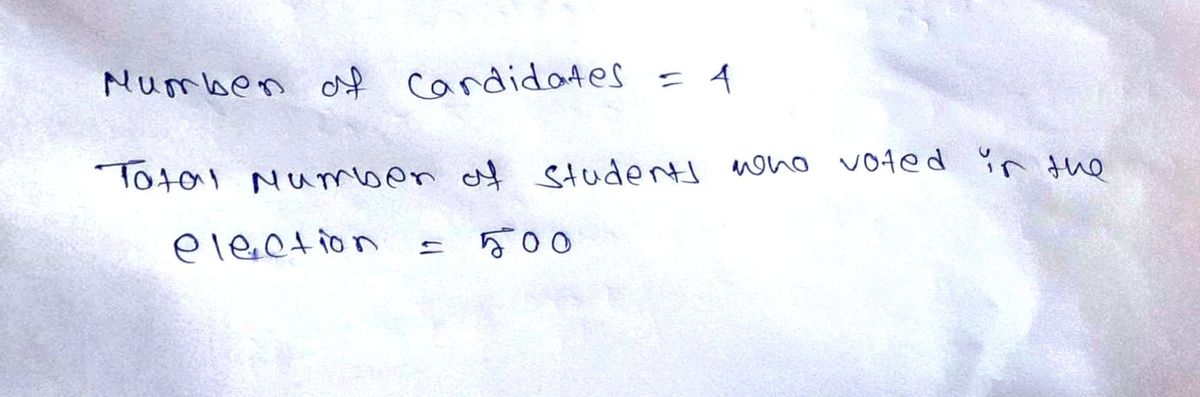 Number of Candidates = 4
Total Number of students who voted in the
election = 500